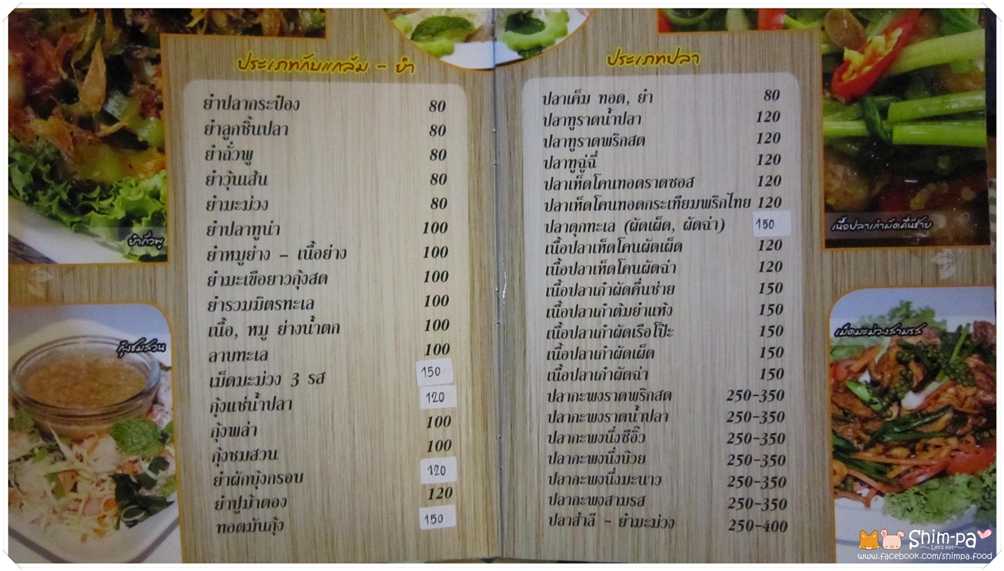 ประเภทกับแกล้ม - ยำ
ยำปลากระป๋อง 80
ยำลูกชิ้นปลา 80
ยำถั่วพู 80
ยำวุ้นเส้น 80
ยำมะม่วง 80
ยำปลาทูน่า 100
ยำหมูย่าง - เนื้อย่าง 100
ยำมะเขือยาวกุ้งสด 100
ยำรวมมิตรทะเล 100
เนื้อ, หมู ย่างน้ำตก 100
ลาบทะเล 100
เม็ดมะม่วง 3 รส 150
กุ้งแช่น้ำปลา 120
กุ้งพล่า 100
กุ้งชมสวน 100
ยำผักบุ้งกรอบ 120
ยำปูม้าดอง 120
ทอดมันกุ้ง 150
ยำถั่วพู
กุ้งชมสวน
ประเภทปลา
ปลาเค็ม ทอด, ยำ 80
ปลาทูราดน้ำปลา 120
ปลาทูราดพริกสด 120
ปลาทูฉู่ฉี่ 120
ปลาเห็ดโคนทอดราดซอส 120
ปลาเห็ดโคนทอดกระเทียมพริกไทย 120
ปลาดุกทะเล (ผัดเผ็ด, ผัดฉ่า) 150
เนื้อปลาเห็ดโคนผัดเผ็ด 120
เนื้อปลาเห็ดโคนผัดฉ่า 120
เนื้อปลาเก๋าผัดคื่นช่าย 150
เนื้อปลาเก๋าต้มยำแห้ง 150
เนื้อปลาเก๋าผัดเรือโป๊ะ 150
เนื้อปลาเก๋าผัดเผ็ด 150
เนื้อปลาเก๋าผัดฉ่า 150
ปลากะพงราดพริกสด 250-350
ปลากะพงราดน้ำปลา 250-350
ปลากะพงนึ่งซีอิ๊ว 250-350
ปลากะพงนึ่งบ๊วย 250-350
ปลากะพงนึ่งมะนาว 250-350
ปลากะพงสามรส 250-350
ปลาสำลี - ยำมะม่วง 250-400
เนื้อปลาเก๋าผัดคื่นช่าย
เม็ดมะม่วงสามรส
Shim-pa
Let's Eat
www.facebook.com/shimpa.food